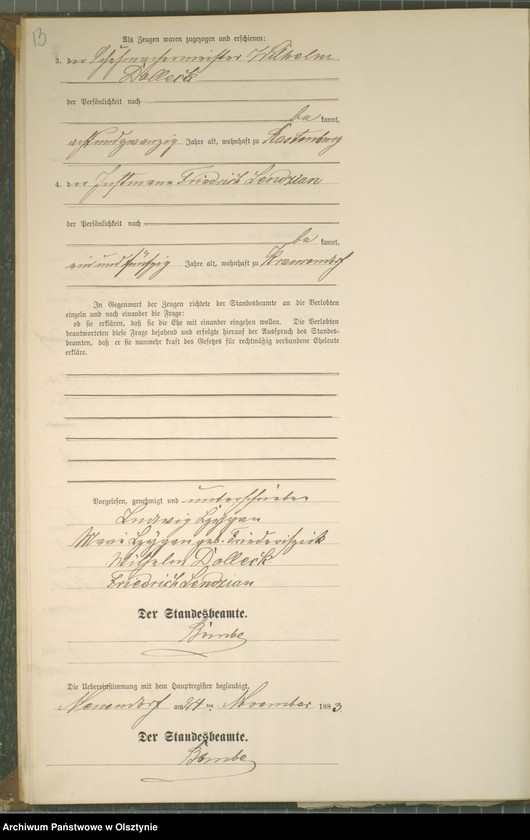 13
Als Zeugen waren zugezogen und erschienen:
3. der Schuhmachermeister Wilhelm
Dolleck
der Persönlichkeit nach
be kannt,
achtundzwanzig Jahre alt, wohnhaft zu Rastenburg
4. der Instmann Friedrich Lendzian
der Persönlichkeit nach
be kannt,
ein und fünfzig Jahre alt, wohnhaft zu
In Gegenwart der Zeugen richtete der Standesbeamte an die Verlobten
einzeln und nach einander die Frage:
ob sie erklären, daß sie die Ehe mit einander eingehen wollen. Die Verlobten
beantworteten diese Frage bejahend und erfolgte hierauf der Ausspruch des Standes-
beamten, daß er sie nunmehr kraft des Gesetzes für rechtmäßig verbundene Eheleute
erkläre.
Vorgelesen, genehmigt und unterschrieben
Ludwig
Marie geb.
Wilhelm Dolleck
Friedrich Lendzian
Der Standesbeamte.
Die Uebereinstimmung mit dem Hauptregister beglaubigt,
am 24 ten November 1883
Der Standesbeamte.
Archiwum Państwowe w Olsztynie